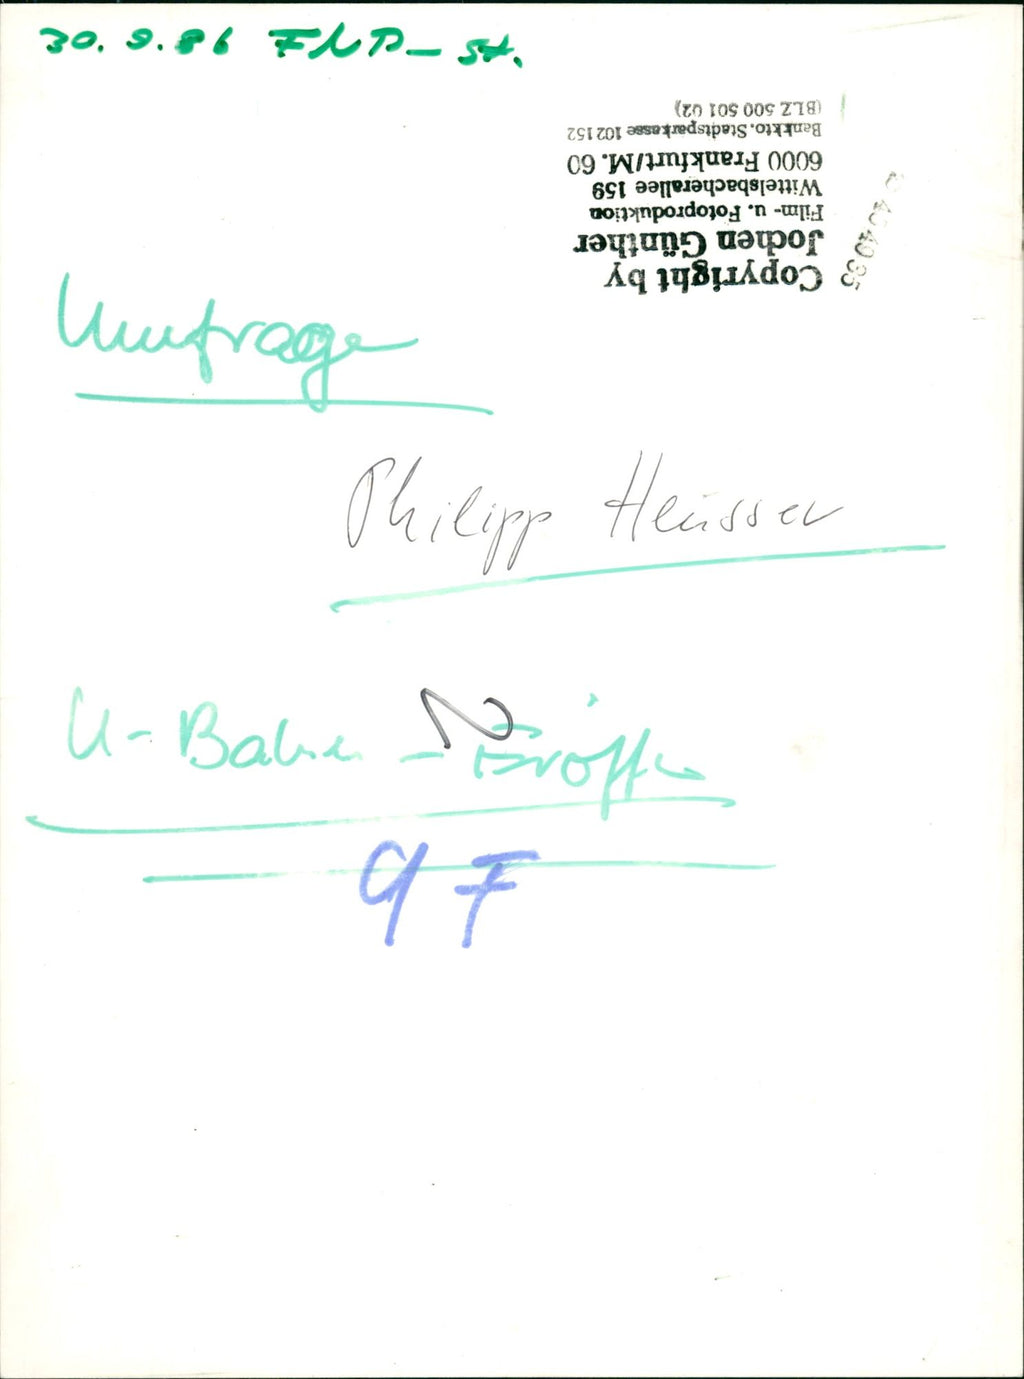 30. 9. 86 FNP - St.
Copyright by
Jochen Günther
Film- u. Fotoproduktion
Wittelsbacherallee 159
6000 Frankfurt/M. 60
Bankkto. Stadtsparkasse 102 152
(BLZ 500 501 02)
Umfrage
Philipp Heusser
U-Bahn - Eröffn
9 F